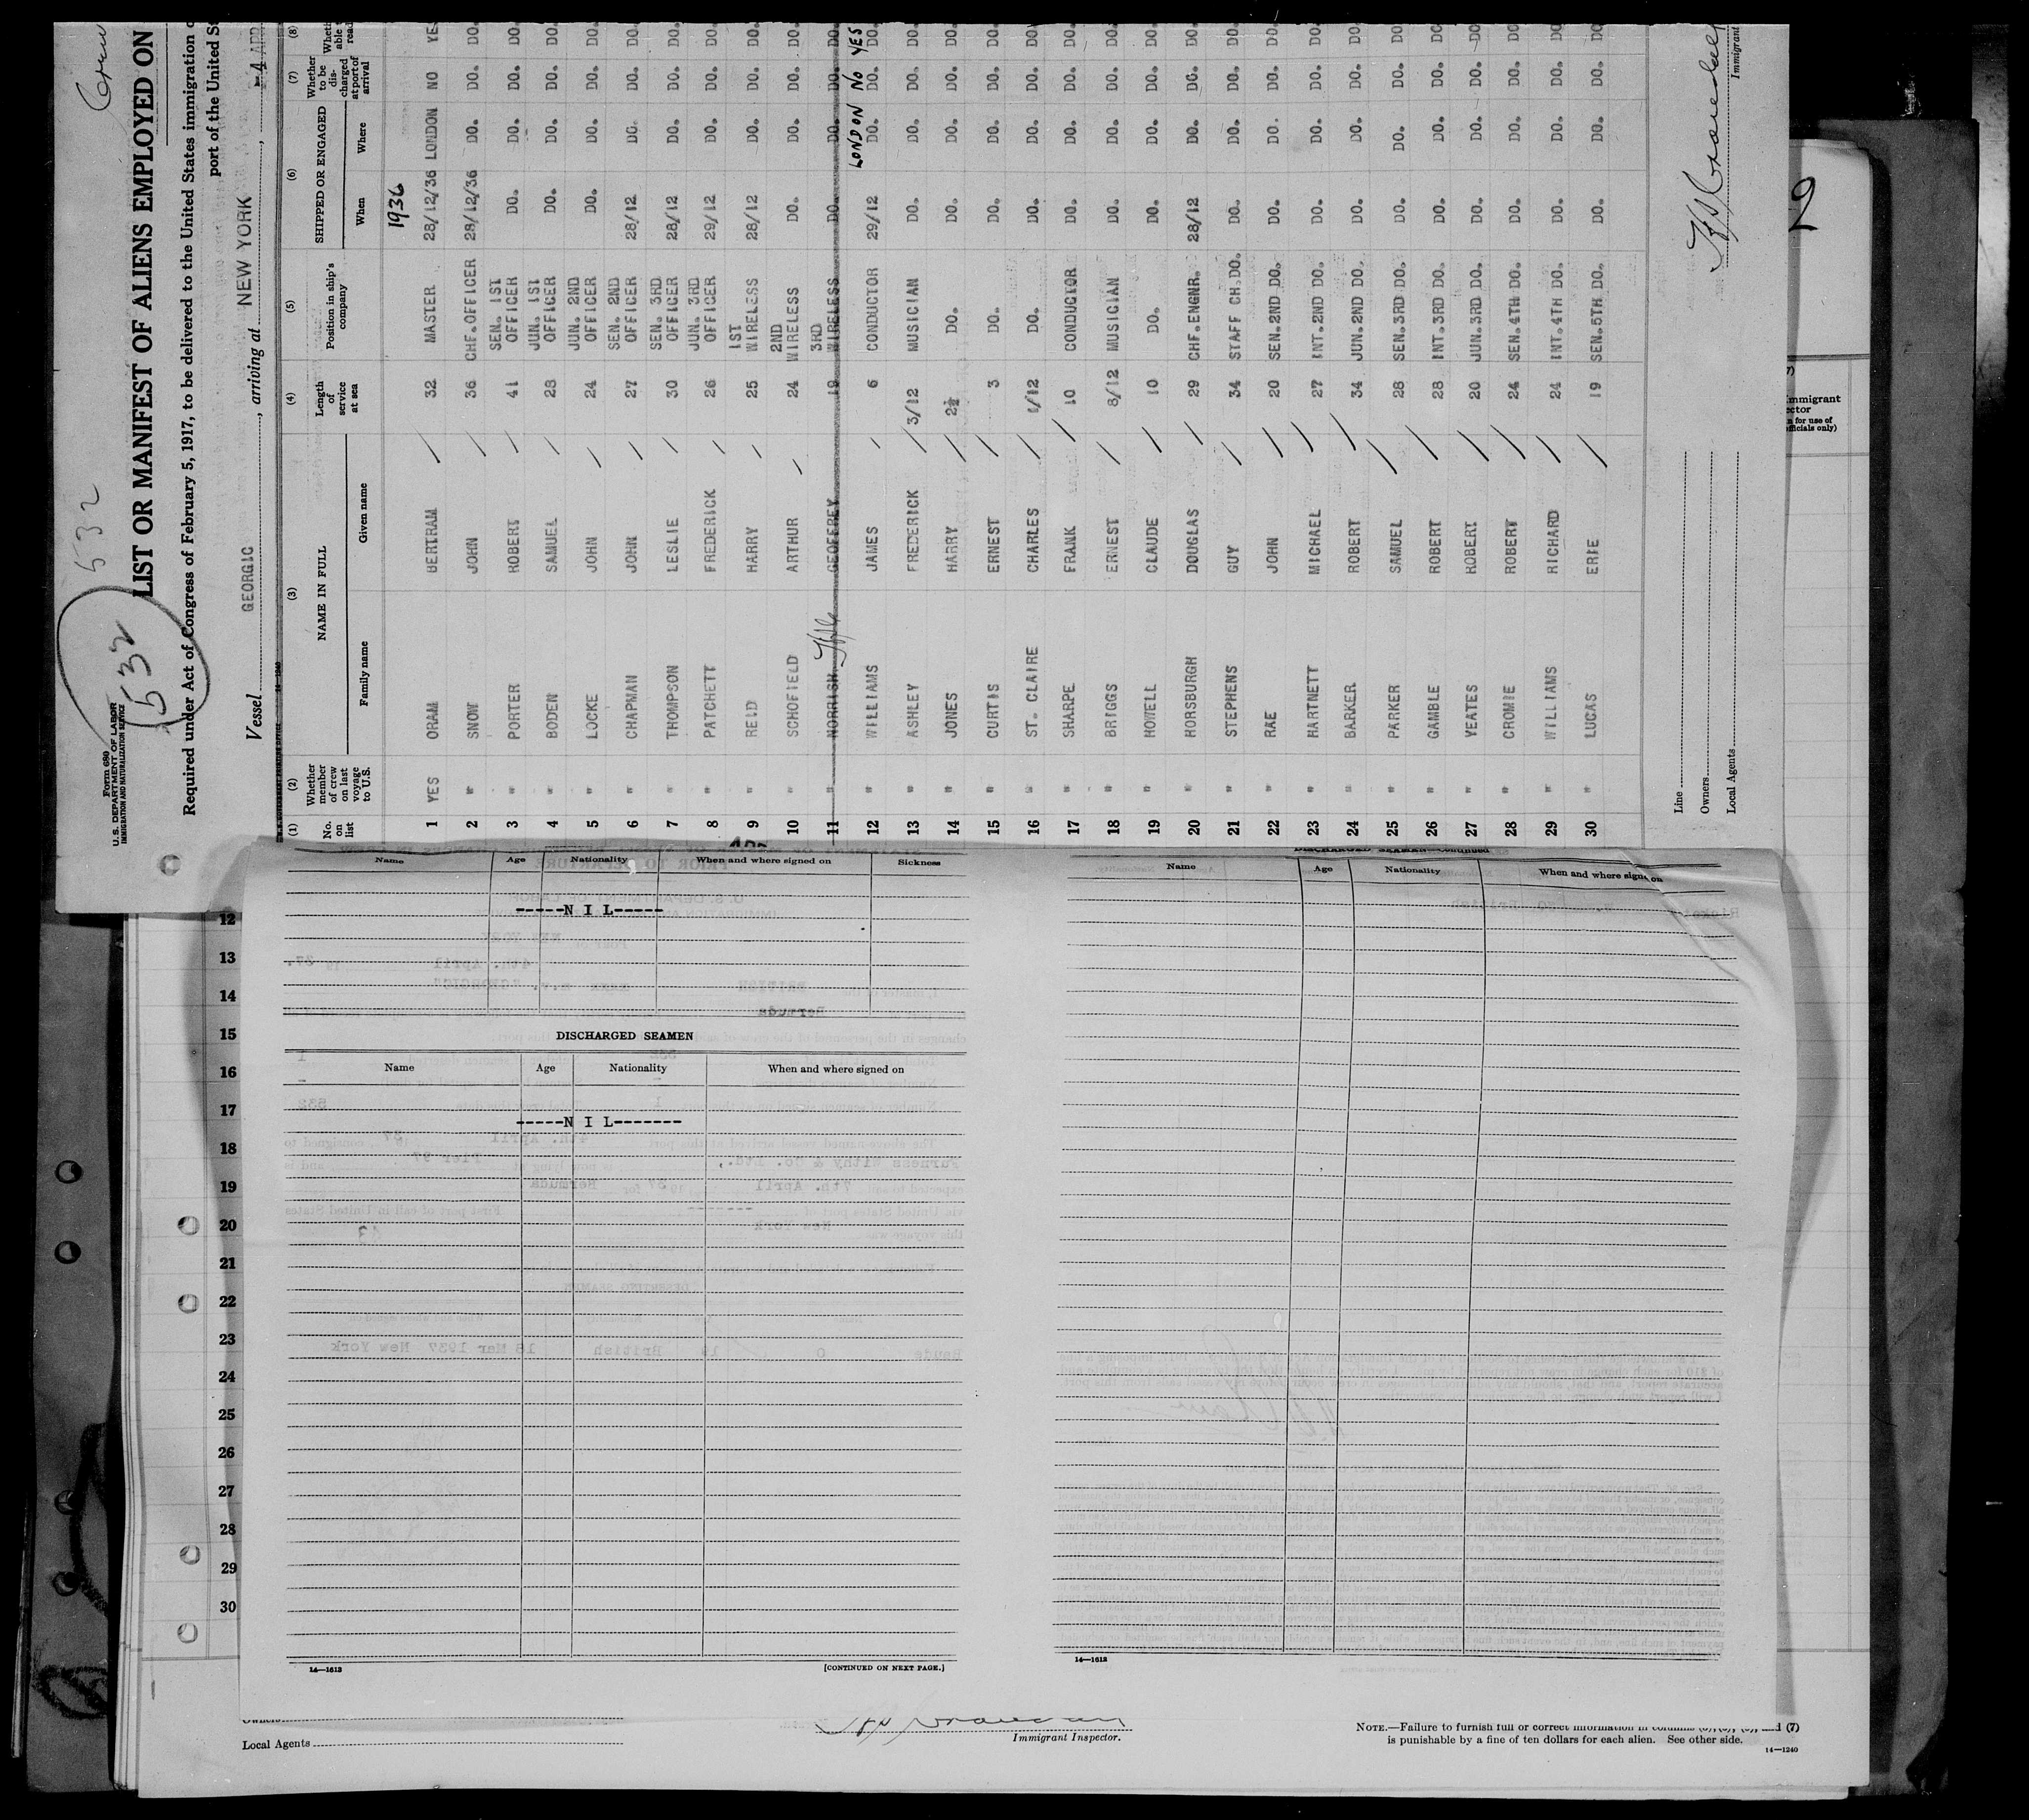 Form 680
U. S. DEPARTMENT OF LABOR
IMMIGRATION AND NATURALIZATION SERVICE
532
532
Crew
LIST OR MANIFEST OF ALIENS EMPLOYED ON
Required under Act of Congress of February 5, 1917, to be delivered to the United States immigration
port of the United St
Vessel GEORGIC, arriving at NEW YORK, 4 APR
(1) (2) (3) (4) (5) (6) (7) (8)
No. on list
Whether member of crew on last voyage to U.S.
NAME IN FULL
Family name Given name
Length of service at sea
Position in ship's company
SHIPPED OR ENGAGED
When Where
Whether to be discharged at port of arrival
1936
1 YES ORAM BERTRAM 32 MASTER 28/12/36 LONDON NO YE
2 " SNOW JOHN 36 CHF.OFFICER 28/12/36 DO. DO. DO.
3 " PORTER ROBERT 41 SEN. 1ST OFFICER DO. DO. DO. DO.
4 " BODEN SAMUEL 28 JUN. 1ST OFFICER DO. DO. DO. DO.
5 " LOCKE JOHN 24 JUN. 2ND OFFICER DO. DO. DO. DO.
6 " CHAPMAN JOHN 27 SEN. 2ND OFFICER 28/12 DO. DO. DO.
7 " THOMPSON LESLIE 30 SEN. 3RD OFFICER 28/12 DO. DO. DO.
8 " PATCHETT FREDERICK 26 JUN. 3RD OFFICER 29/12 DO. DO. DO.
9 " REID HARRY 25 1ST WIRELESS 28/12 DO. DO. DO.
10 " SCHOFIELD ARTHUR 24 2ND WIRELESS DO. DO. DO. DO.
11 " NORRISH GEOFFREY 19 3RD WIRELESS DO. DO. DO. DO.
LONDON NO YES
12 " WILLIAMS JAMES 6 CONDUCTOR 29/12 DO. DO. DO.
13 " ASHLEY FREDERICK 3/12 MUSICIAN DO. DO. DO. DO.
14 " JONES HARRY 2½ DO. DO. DO. DO. DO.
15 " CURTIS ERNEST 3 DO. DO. DO. DO. DO.
16 " ST. CLAIRE CHARLES 1/12 DO. DO. DO. DO. DO.
17 " SHARPE FRANK 10 CONDUCTOR DO. DO. DO. DO.
18 " BRIGGS ERNEST 8/12 MUSICIAN DO. DO. DO. DO.
19 " HOWELL CLAUDE 10 DO. DO. DO. DO. DO.
20 " HORSBURGH DOUGLAS 29 CHF.ENGNR. 28/12 DO. DO. DO.
21 " STEPHENS GUY 34 STAFF CH.DO. DO. DO. DO. DO.
22 " RAE JOHN 20 SEN.2ND DO. DO. DO. DO. DO.
23 " HARTNETT MICHAEL 27 INT.2ND DO. DO. DO. DO. DO.
24 " BARKER ROBERT 34 JUN.2ND DO. DO. DO. DO. DO.
25 " PARKER SAMUEL 28 SEN.3RD DO. DO. DO. DO. DO.
26 " GAMBLE ROBERT 28 INT.3RD DO. DO. DO. DO. DO
27 " YEATES ROBERT 20 JUN.3RD DO. DO. DO. DO. DO
28 " CROMIE ROBERT 24 SEN.4TH DO. DO. DO. DO. DO
29 " WILLIAMS RICHARD 24 INT.4TH DO. DO. DO. DO. DO
30 " LUCAS ERIE 19 SEN.5TH DO. DO. DO. DO. DO
Line
Owners
Local Agents
Immigrant
2
Immigrant
ector
n for use of
officials only)
Name Age Nationality When and where signed on Sickness
-----N I L-----
DISCHARGED SEAMEN
Name Age Nationality When and where signed on
-----N I L-------
14—1613
[CONTINUED ON NEXT PAGE.]
DISCHARGED SEAMEN—Continued
Name Age Nationality When and where signed on
14—1613
12
13
14
15
16
17
18
19
20
21
22
23
24
25
26
27
28
29
30
Owners
Local Agents
Immigrant Inspector.
NOTE.—Failure to furnish full or correct information in columns and (7)
is punishable by a fine of ten dollars for each alien. See other side.
14—1240